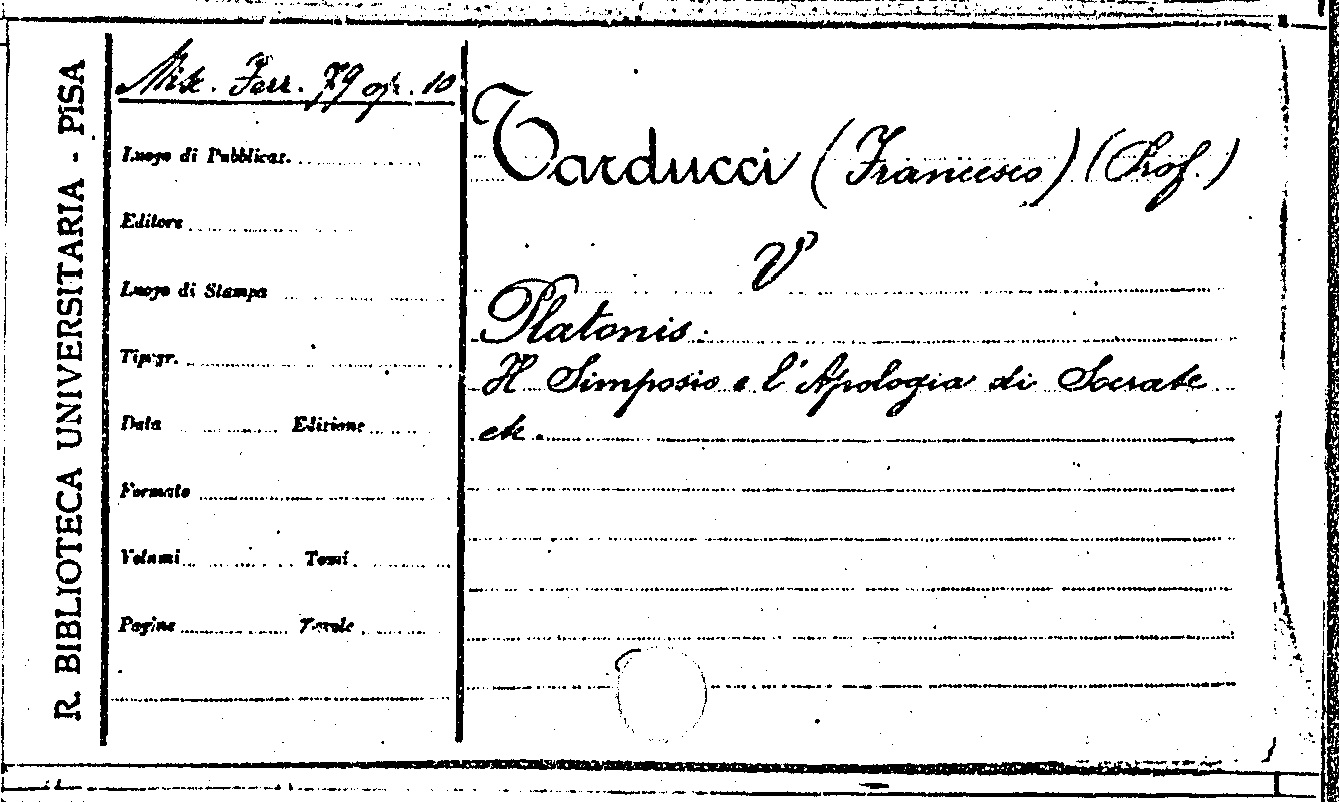 R. BIBLIOTECA UNIVERSITARIA - PISA
Misc. Ferr. 79 op. 10
Luogo di Pubblicaz.
Editore
Luogo di Stampa
Tipogr.
Data Edizione
Formato
Volumi Tomi
Pagine Tavole
Tarducci (Francesco) (Prof.)
V
Platonis.
Il Simposio e l'Apologia di Socrate
etc.